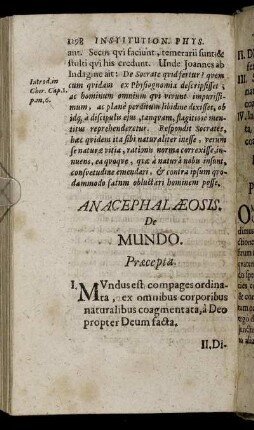 1198 INSTITUTION. PHYS.
unt. Secus qui faciunt, temerarii sunt &
stulti qui his credunt. Unde Joannes ab
Indagine ait: De Socrate quid fertur? quem
cum quidam ex Physognomia descripsisset,
ac hominem omnium qui virunt impurissi-
mum, ac planè perditum libidine dixisset, ob
idq́, à discipulis ejus, tanquam, flagitiose men-
titus reprehenderetur. Respondit Socrates,
hæc quidem ita sibi naturaliter inesse, verùm
se naturæ vitia, rationis norma correxisse, in-
nuens, ea quoque, quæ à naturâ nobis insunt,
consuetudine emendari, & contra ipsum quo-
dammodo fatum obluctari hominem posse.
Introd. in
Chir. Cap. 1.
p. m. 6.
ANACEPHALÆOSIS.
De
MUNDO.
Præcepta.
I. MVndus est compages ordina-
ta, ex omnibus corporibus
naturalibus coagmentata, à Deo
propter Deum facta.
II. Di-